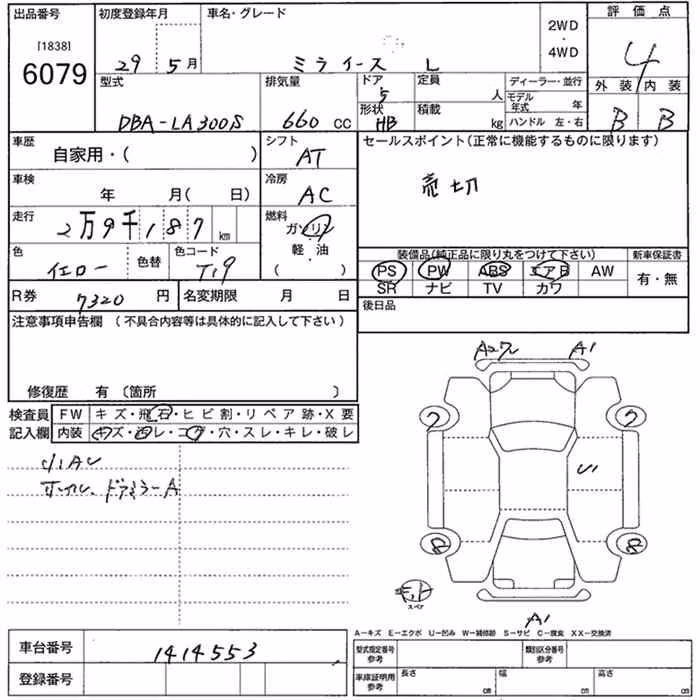 出品番号 初度登録年月 車名・グレード 2WD ・ 4WD 評価点
[1838]
6079
29 5月 ミライース L 4
型式 排気量 ドア 5 定員 人 ディーラー・並行 外装 内装
DBA-LA300S 660 cc 形状 HB 積載 kg モデル年式 年 B B
ハンドル 左・右
車歴 自家用・( ) シフト AT セールスポイント(正常に機能するものに限ります)
車検 年 月( 日) 冷房 AC 売切
走行 2万9千187 km 燃料 ガソリン
軽・油
( )
色 イエロー 色替 色コード T19
装備品(純正品に限り丸をつけて下さい) 新車保証書
PS PW ABS エアB AW 有・無
SR ナビ TV カワ
R券 7320円 名変期限 月 日 後日品
注意事項申告欄 (不具合内容等は具体的に記入して下さい)
修復歴 有 〔箇所 〕
検査員 FW キズ・飛石・ヒビ割・リペア跡・X要
記入欄 内装 キズ・汚レ・コゲ・穴・スレ・キレ・破レ
小1AU
ホイル、ドアミラーA
A2 A1
7 7
U1
8 8
スペア
A1
A-キズ E-エクボ U-凹み W-補修跡 S-サビ C-腐食 XX-交換済
車台番号 1414553 型式指定番号 参考 類別区分番号 参考
登録番号 車庫証明用 参考 長さ cm 幅 cm 高さ cm